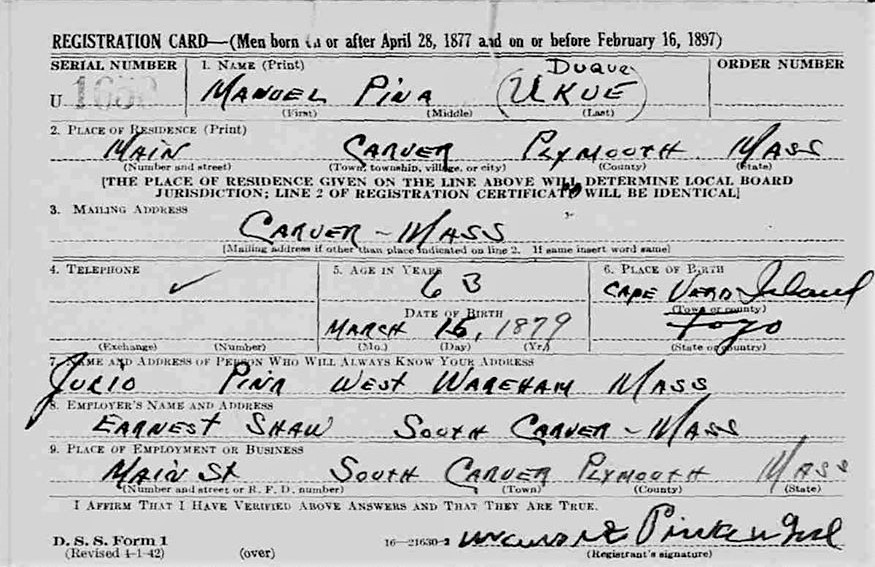 REGISTRATION CARD—(Men born on or after April 28, 1877 and on or before February 16, 1897)
SERIAL NUMBER 1. NAME (Print) ORDER NUMBER
DUQUE
U 1650 MANUEL PINA (UKUE)
(First) (Middle) (Last)
2. PLACE OF RESIDENCE (Print)
MAIN CARVER PLYMOUTH MASS
(Number and street) (Town, township, village, or city) (County) (State)
[THE PLACE OF RESIDENCE GIVEN ON THE LINE ABOVE WILL DETERMINE LOCAL BOARD
JURISDICTION; LINE 2 OF REGISTRATION CERTIFICATE WILL BE IDENTICAL]
3. MAILING ADDRESS
CARVER - MASS
[Mailing address if other than place indicated on line 2. If same insert word same]
4. TELEPHONE 5. AGE IN YEARS 6. PLACE OF BIRTH
✓ 63 CAPE VERD Island
DATE OF BIRTH (Town or county)
MARCH 15, 1879 Fogo
(Exchange) (Number) (Mo.) (Day) (Yr.) (State or country)
7. NAME AND ADDRESS OF PERSON WHO WILL ALWAYS KNOW YOUR ADDRESS
JULIO PINA WEST WAREHAM MASS
8. EMPLOYER'S NAME AND ADDRESS
EARNEST SHAW SOUTH CARVER - MASS
9. PLACE OF EMPLOYMENT OR BUSINESS
MAIN St SOUTH CARVER PLYMOUTH MASS
(Number and street or R. F. D. number) (Town) (County) (State)
I AFFIRM THAT I HAVE VERIFIED ABOVE ANSWERS AND THAT THEY ARE TRUE.
D. S. S. Form 1
(Revised 4-1-42) (over) 16—21630-2
(Registrant's signature)